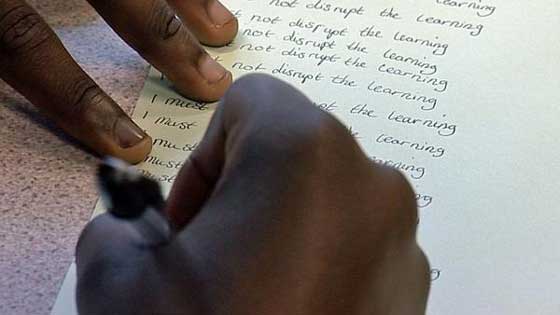 not disrupt the learning
not disrupt the learning
not disrupt the learning
not disrupt the learning
not disrupt the learning
I must the learning
I must the learning
must learning
must